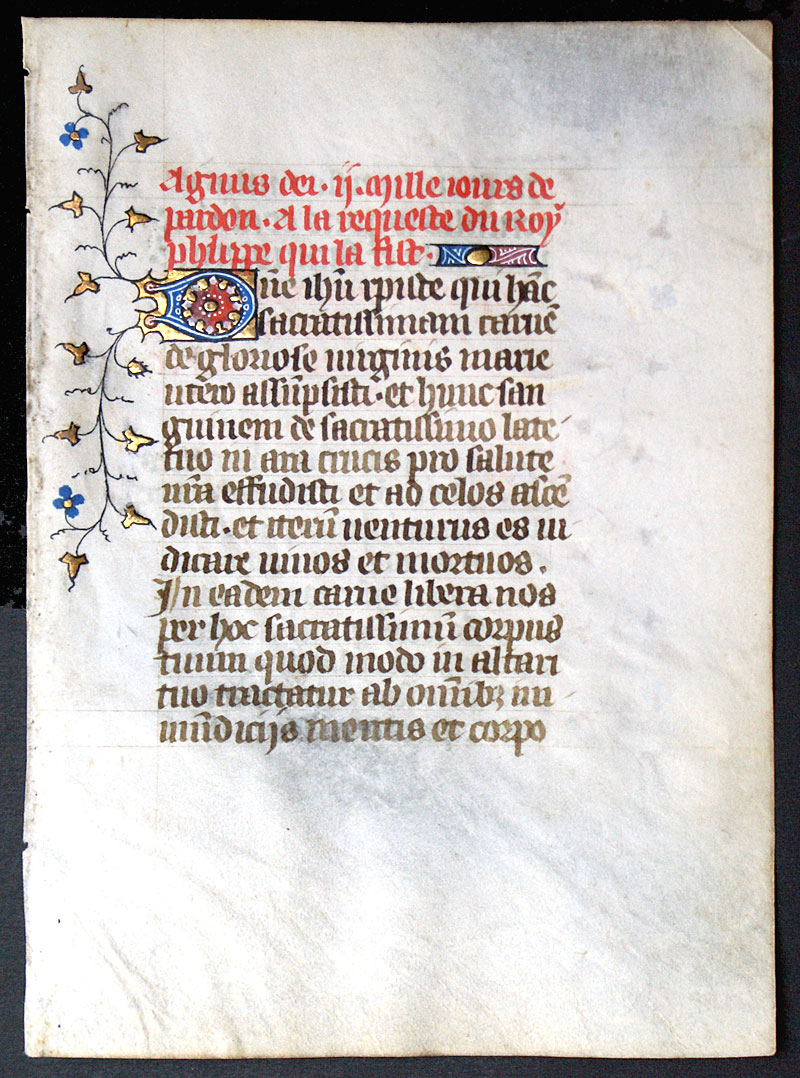 Agnus dei · ij · Mille iours de
pardon · A la requeste du Roy
phlippe qui la fist ·
Dn̄e ihū xp̄iste qui hāc
sacratissimam carnē
de gloriose uirginis marie
utero assūpsisti · et hunc san
guinem de sacratissimo late
tuo in ara crucis pro salute
nrā effudisti et ad celos ascē
disti · et iterū uenturus es iu
dicare uiuos et mortuos .
In eadem carne libera nos
per hoc sacratissimū corpus
tuum quod modo in altari
tuo tractatur ab om̄ibꝫ in
mūdicijs mentis et corpo